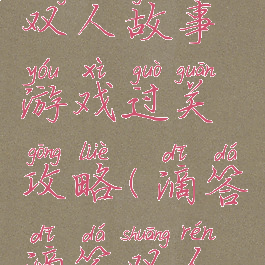 双人故事
yóu xì guò guān
游戏过关
gōng lüè dī dá
攻略(滴答
dī dá shuāng rén
滴答双人